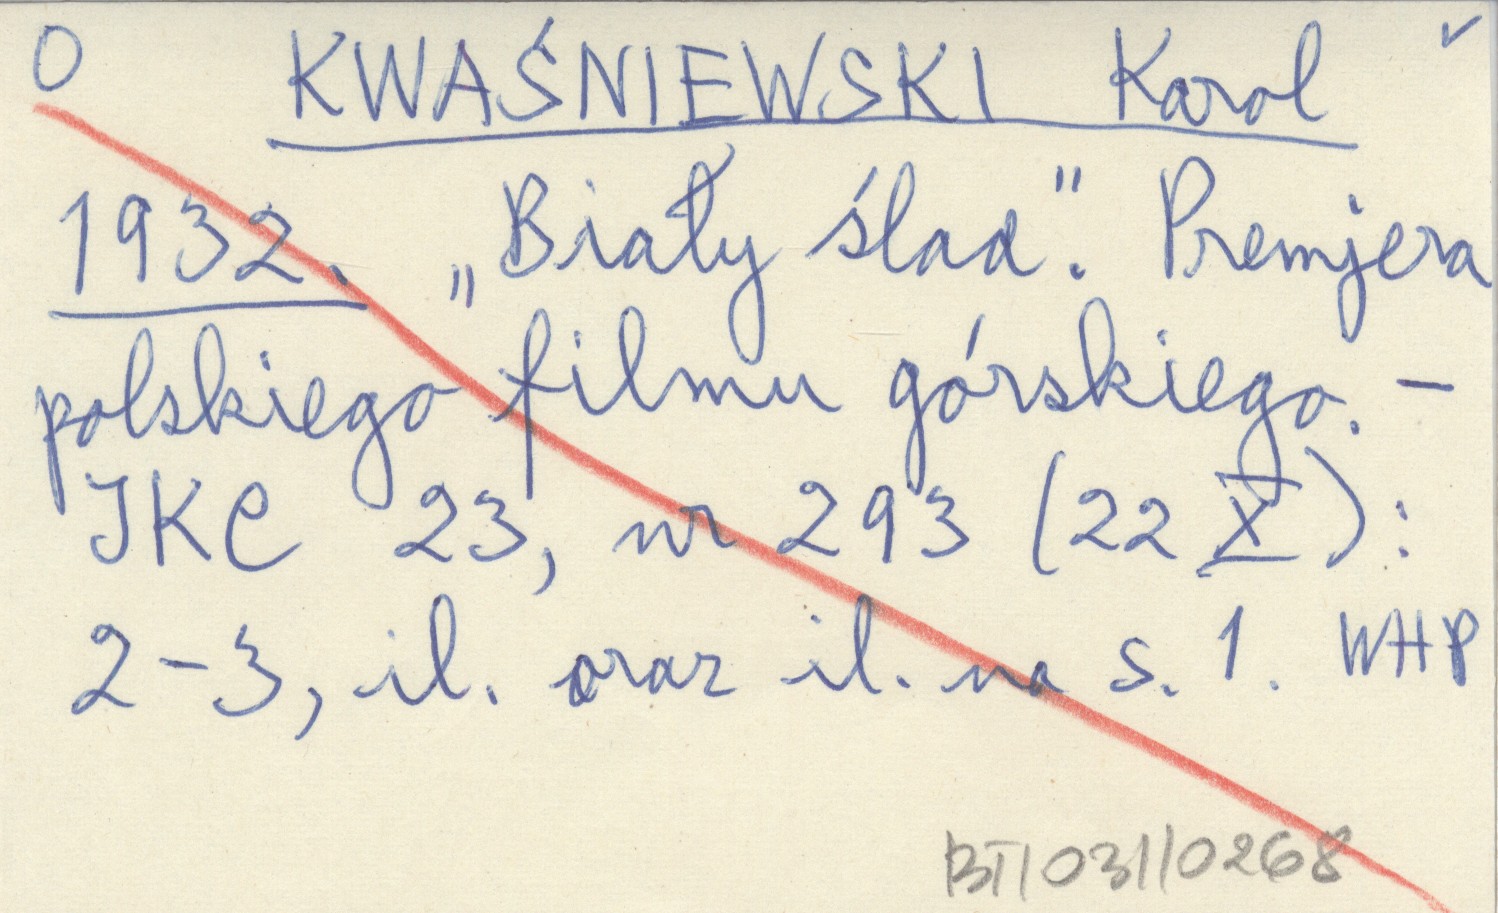 O KWAŚNIEWSKI Karol ✓
1932. „Biały ślad”. Premjera
polskiego filmu górskiego. –
IKC 23, nr 293 (22 X):
2–3, il. oraz il. na s. 1. WHP
BT/031/0268